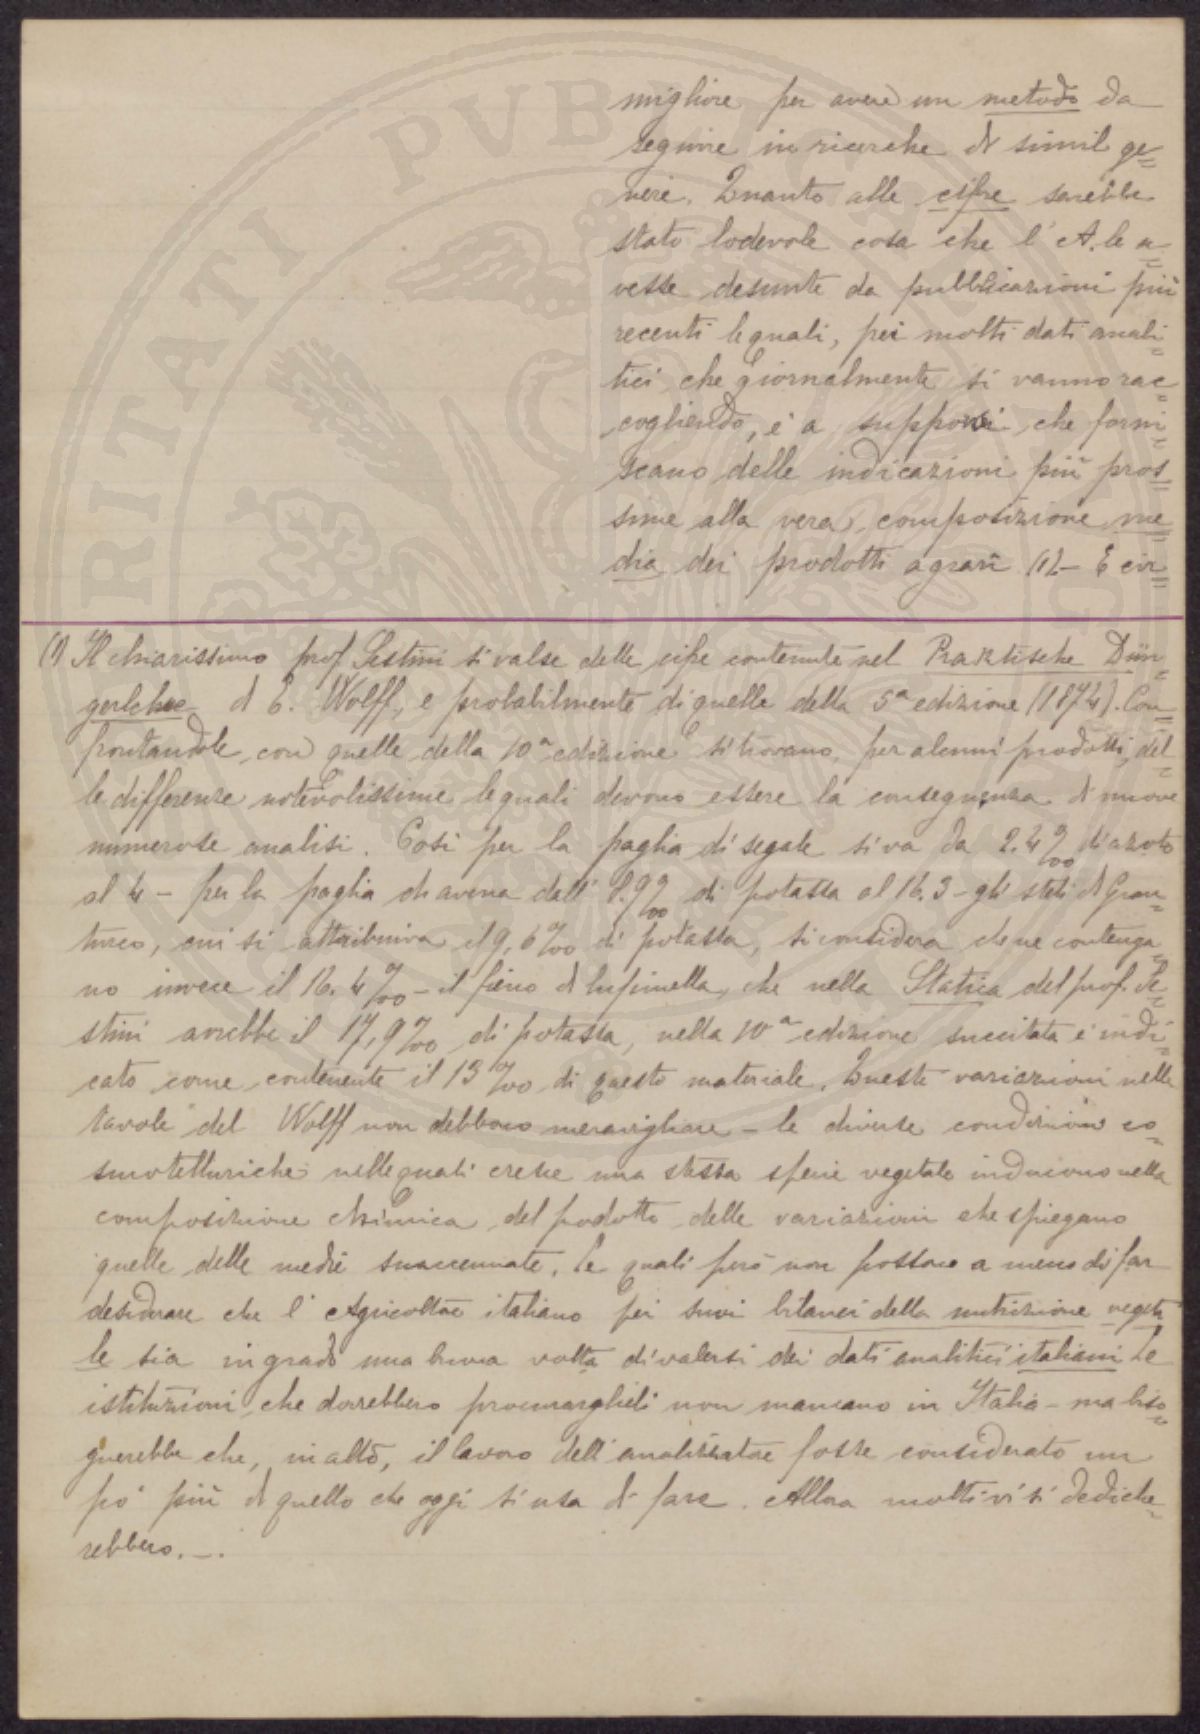 migliore per avere un metodo da
seguire in ricerche di simil ge=
nere. Quanto alle cifre sarebbe
stato lodevole cosa che l'A. le a=
vesse desunte da pubblicazioni più
recenti le quali, pei molti dati anali=
tici che giornalmente si vanno rac=
cogliendo, è a supporsi che forni=
scano delle indicazioni più pros=
sime alla vera composizione me=
dia dei prodotti agrari (1) - È cir=
(1) Il chiarissimo prof. Sestini si valse delle cifre contenute nel Praktische Dün=
gerlehre di E. Wolff, e probabilmente di quelle della 5ª edizione (1874). Con=
frontandole con quelle della 10ª edizione si trovano, per alcuni prodotti, del=
le differenze notevolissime le quali devono essere la conseguenza di nuove
numerose analisi. Così per la paglia di segale si va da 2.4‰ d'azoto
al 4 - per la paglia di avena dall' 8.9‰ di potassa al 16.3 - gli steli di Gran=
turco, cui si attribuiva il 9,6‰ di potassa, si considera che ne contenga=
no invece il 16.4‰ - il fieno di lupinella, che nella Statica del prof. Se=
stini avrebbe il 17,9‰ di potassa, nella 10ª edizione succitata è indi=
cato come contenente il 13‰ di questo materiale. Queste variazioni nelle
tavole del Wolff non debbono meravigliare - le diverse condizioni co=
smotelluriche nelle quali cresce una stessa specie vegetale inducono nella
composizione chimica del prodotto delle variazioni che spiegano
quelle delle medie suaccennate. Le quali però non possono a meno di far
desiderare che l'Agricoltore italiano pei suoi bilanci della nutrizione vegeta
le sia in grado una buona volta di valersi dei dati analitici italiani. Le
istituzioni che dovrebbero procurarglieli non mancano in Italia - ma biso=
gnerebbe che, in alto, il lavoro dell'analizzatore fosse considerato un
po' più di quello che oggi si usa di fare. Allora molti vi si dediche=
rebbero. -.
PVB
RITATI